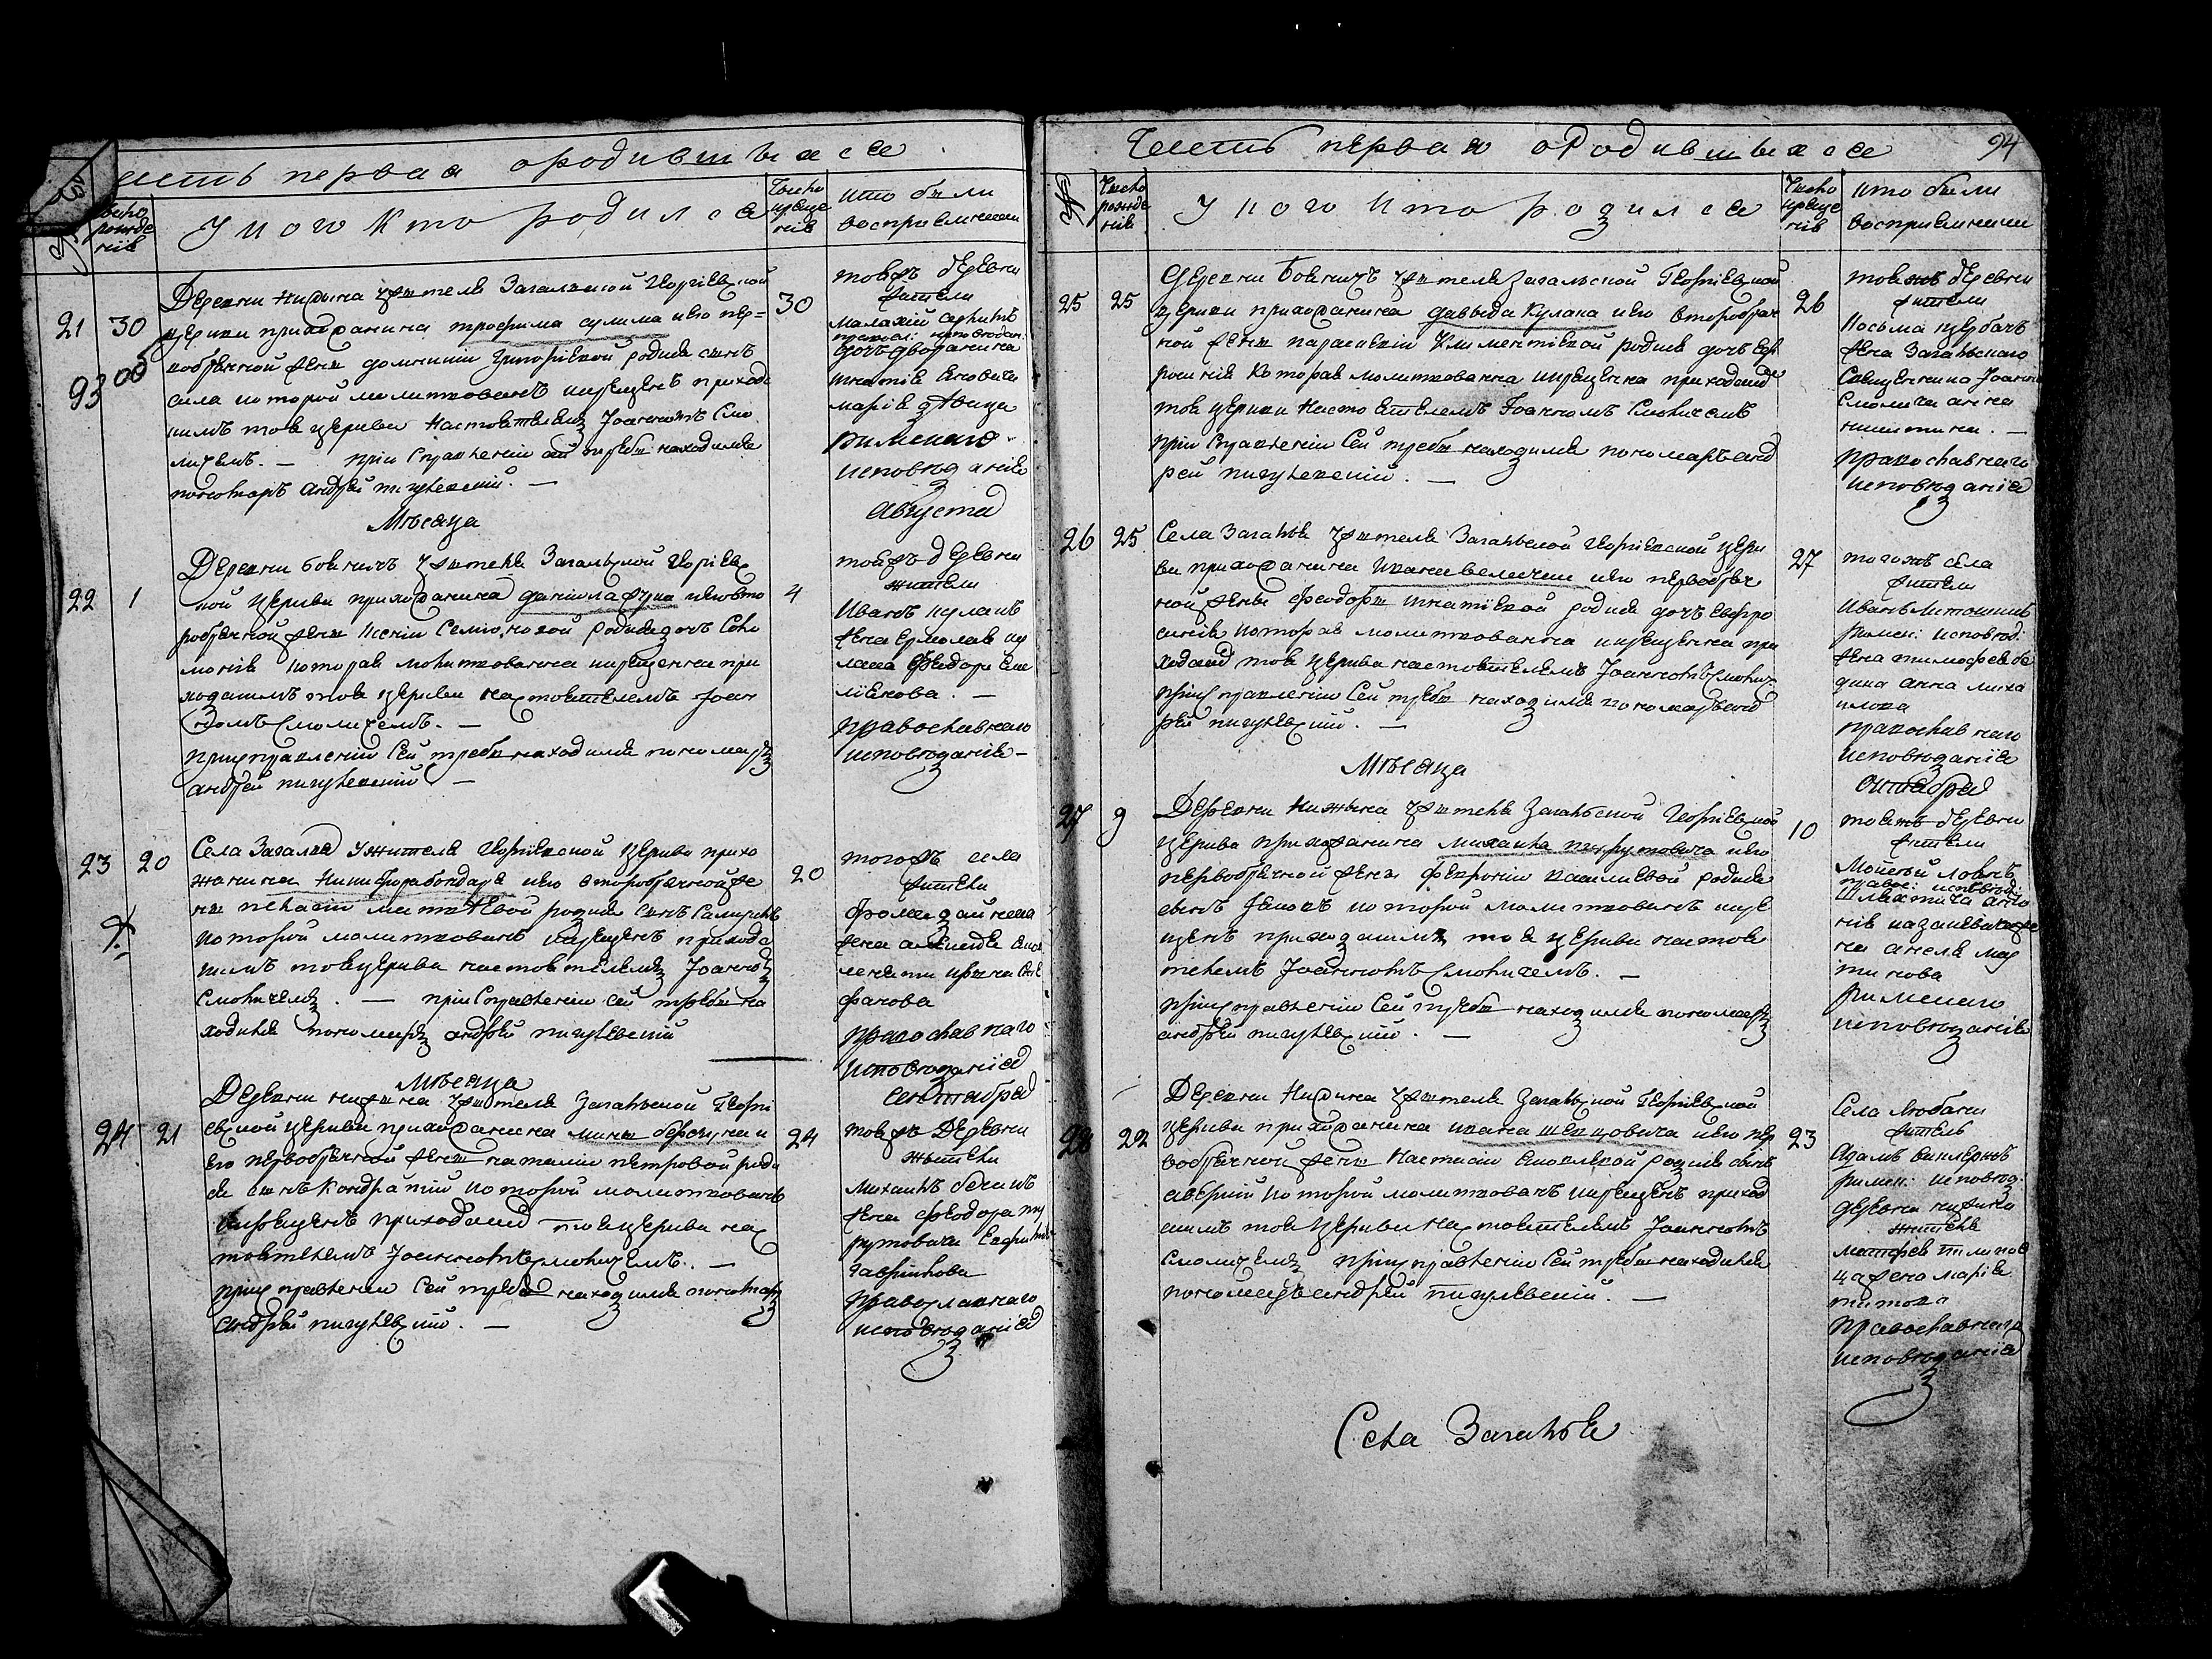 асть первая ородившыхся
Число рожденія
У кого кто родился
Число крещенія
кто были восприемники
21 30
Деревни Нижина ужителя Загальской Георгіевской
30
церкви прихожанина трофима сулима иего пер=
вобрачной жены домникіи Григоріевой родися сынъ
сила которой молитвованъ икрещенъ приход
скимъ тоя церкви Настоятелемъ Іоанномъ Смо
личемъ. — при справленіи сей требы находился
пономаръ андрей пигулевский. —
тояжъ деревни
жители
Малахій
дочъ дворанина
игнатія
марія девица
Римскаго
исповеданія
93 об
Месяца
Августа
22 1
Деревни бояничъ ужителя Загальской Георгіев
4
ской церкви прихожанина даніила жука иеговто
робрачной жены Ксеніи Семіоновой родися дочъ Соло
монія которая молитвованна икрещенна при
ходскимъ тоя церкви настоятелемъ Іоан
номъ Смоличемъ. —
присправленіи Сей требы находился пономаръ
андрей пигулевский —
тояжъ деревни
жители
Иванъ кулакъ
жена Ермолая ку
лака Феодора
православнаго
исповеданія —
23 20
Села Загалья ужителя Георгіевской Церкви прихо
20
жанина Никифора бондаря иего второбрачной же
ны пелагіи матѣевой родися сынъ
которой молитвованъ икрещенъ приход
скимъ тояцеркви настоятелемъ Іоанномъ
Смоличемъ. — при Справленіи сей требы на
ходился пономаръ андрей пигулевский
тогожъ села
жители
жена
фанова
православнаго
исповеданія
Месяца
Сентября
24 21
Деревни нижина ужителя Загальской Георгі
24
евской церкви прихожанина мины
его первобрачной жены наталіи петровой роди
ся сынъ кондратій которой молитвованъ
икрещенъ приходским тояцеркви нас
тоятелемъ Іоанномъ Смоличемъ. —
присправленіи Сей требы находился пономаръ
андрей пигулевский. —
тояжъ Деревни
жители
Михаилъ
жена феодора пи
рутовича
гавриилова
православнаго
исповеданія
Часть первая ородившыхся
94
Число рожденія
У кого кто родился
Число крещенія
кто были восприемники
25 25
Деревни Бояничъ ужителя Загальской Георгіевской
26
церкви прихожанина давыда Кулака иего второбрач
ной жены параскевіи Климентіевой родися дочъ Евф
росинія Которая молитвованна икрещенна приходским
тоя церкви Настоятелемъ Іоанномъ Смоличемъ
При Справленіи Сей требы находился пономаръ анд
рей пигулевский. —
тояжъ деревни
жители
Косьма щербачъ
жена Загальскаго
Священника Іоанна
Смолича анна
никитина. —
православнаго
исповеданія
26 25
Села Загалья ужителя Загальской Георгіевской церк
27
ви прихожанина Ивана величка иего первобрач
ной жены Феодоры игнатіевой родися дочъ евфро
синія Которая молитвованна икрещенна при
ходским тоя церкви настоятелемъ Іоанномъ Смолич
присправленіи Сей требы находился пономаръ анд
рей пигулевский. —
тогожъ села
жители
Иванъ
Римск: исповед:
жена тимофея бо
дина анна миха
илова
православнаго
исповеданія
Месяца
Октября
27 9
Деревни Нижина ужителя Загальской Георгіевской
10
Церкви прихожанина Михаила пирутовича иего
первобрачной жены февроніи василіевой родися
сынъ Іаковъ которой молитвованъ икре
щенъ приходскимъ тоя церкви настоя
телемъ Іоанномъ Смоличемъ. —
присправленіи Сей требы находился пономаръ
андрей пигулевский. —
тояжъ деревни
жители
Мойсей
правос: исповед:
Шляхтича анто
нія
на анеля мар
тинова
Римскаго
исповеданія
28 22
Деревни Нижина ужителя Загальской Георгіевской
23
церкви прихожанина ивана шевцовича иего пер
вобрачной жены Настасіи Яковлевой родися сынъ
аверкій которой молитвованъ икрещенъ приход
скимъ тоя Церкви настоятелемъ Іоанномъ
Смоличемъ присправленіи Сей требы находился
пономаръ андрей пигулевский. —
Села Любани
житель
Адамъ
римск: исповед.
деревни нижина
жителя
матфея
жена марія
титова
Православнаго
исповеданія
Села Загалья